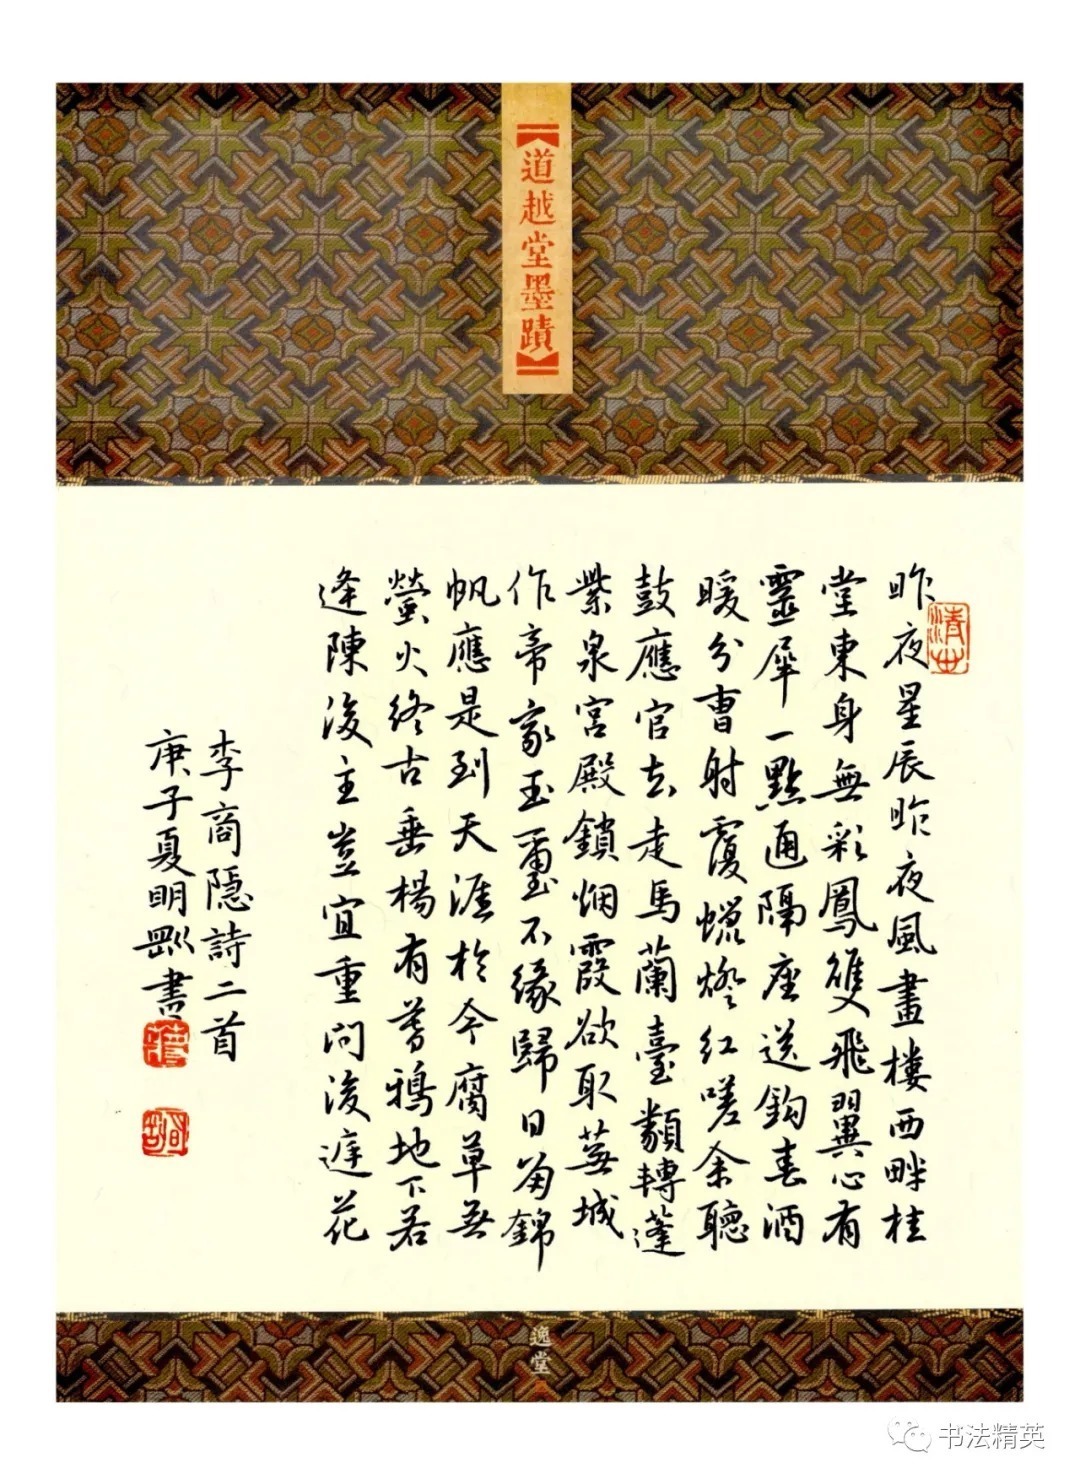 【道越堂墨蹟】
昨夜星辰昨夜風畫樓西畔桂
堂東身無彩鳳雙飛翼心有
靈犀一點通隔座送鈎春酒
暖分曹射覆蠟燈紅嗟余聽
鼓應官去走馬蘭臺類轉蓬
紫泉宮殿鎖烟霞欲取蕪城
作帝家玉璽不緣歸日角錦
帆應是到天涯於今腐草無
螢火終古垂楊有暮鴉地下若
逢陳後主豈宜重問後庭花
李商隱詩二首
庚子夏明 書
逸堂
书法精英